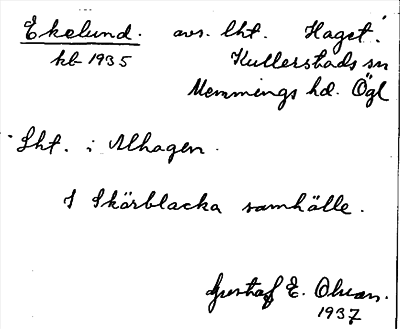 Ekelund. avs. lht. Haget.
kb 1935 Kullerstads sn
Memmings hd. Ögl
Lht. i Alhagen.
I Skärblacka samhälle.
Gustaf E. Ohson.
1937